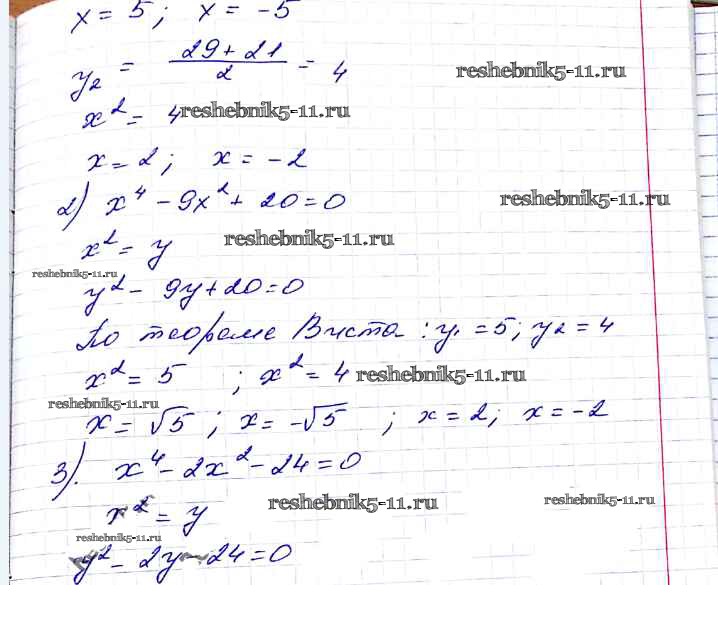 x = 5; x = -5
y₂ = (29 + 21)/2 = 4
reshebnik5-11.ru
x² = 4
reshebnik5-11.ru
x = 2; x = -2
2) x⁴ - 9x² + 20 = 0
reshebnik5-11.ru
x² = y
reshebnik5-11.ru
reshebnik5-11.ru
y² - 9y + 20 = 0
По теореме Виета: y₁ = 5; y₂ = 4
x² = 5 ; x² = 4
reshebnik5-11.ru
reshebnik5-11.ru
x = √5; x = -√5 ; x = 2; x = -2
3). x⁴ - 2x² - 24 = 0
x² = y
reshebnik5-11.ru
reshebnik5-11.ru
reshebnik5-11.ru
y² - 2y - 24 = 0